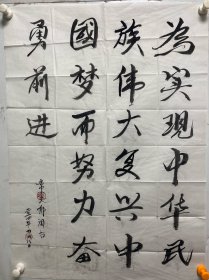 為实現中华民
族伟大复兴中
國梦而努力奋
勇前进